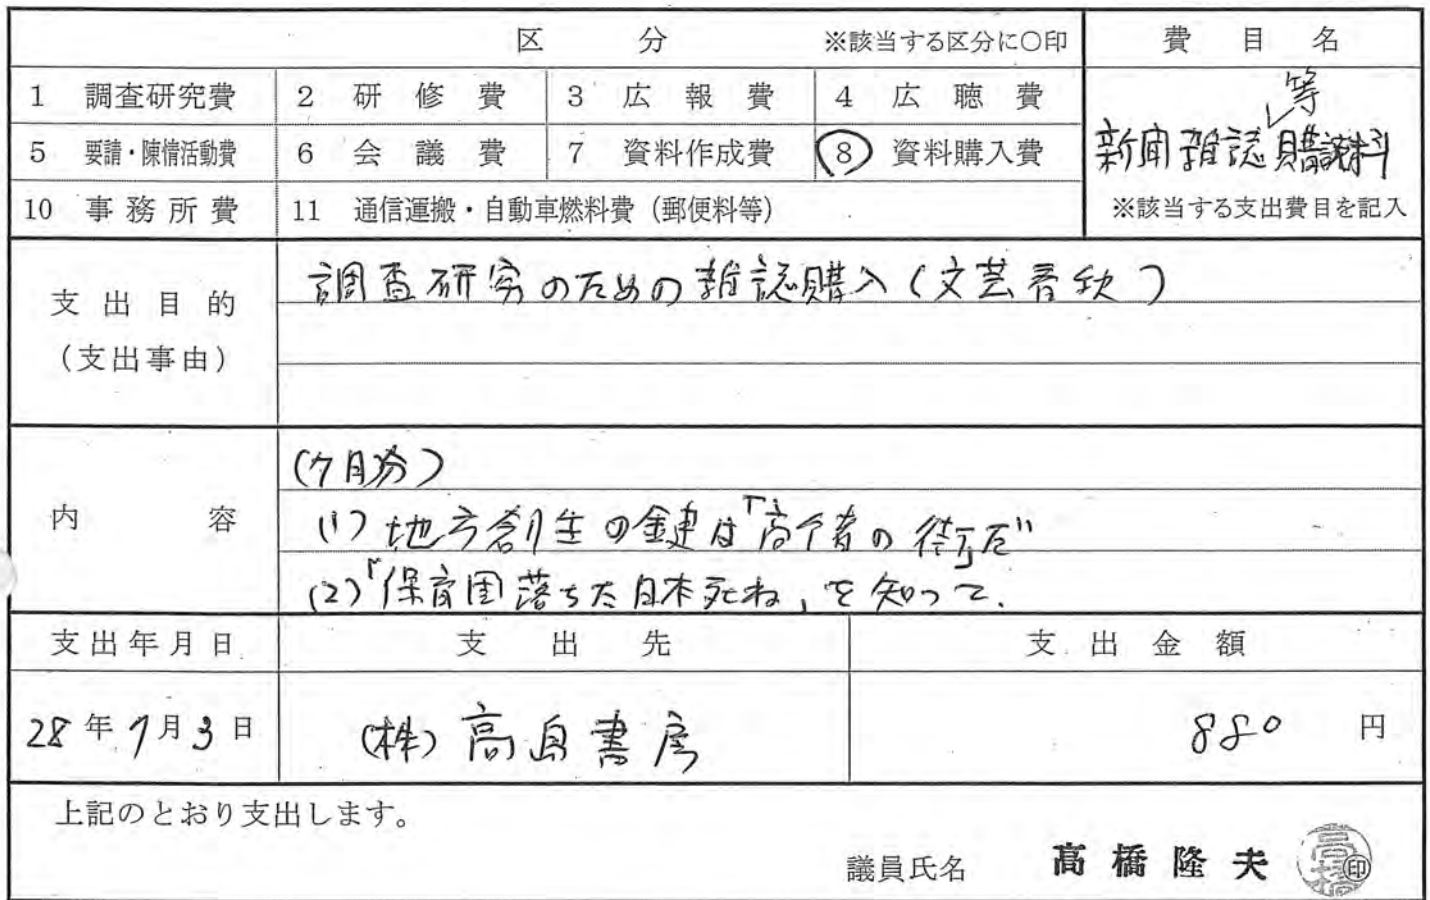 区 分 ※該当する区分に○印 費 目 名
1 調査研究費 2 研 修 費 3 広 報 費 4 広 聴 費
5 要請・陳情活動費 6 会 議 費 7 資料作成費 8 資料購入費
新聞雑誌等購読料
10 事 務 所 費 11 通信運搬・自動車燃料費(郵便料等)
※該当する支出費目を記入
支 出 目 的
(支出事由)
調査研究のための雑誌購入(文芸春秋)
内 容
(7月分)
(1) 地方創生の鍵は「高
(2)「保育園落ちた日本死ね」を知って.
支出年月日 支 出 先 支 出 金 額
28年7月3日 (株)高島書房 880 円
上記のとおり支出します。
議員氏名 高橋隆夫 印